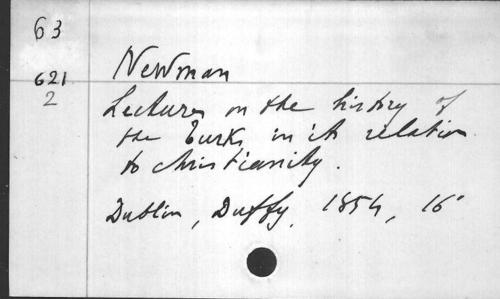 63
621
2
Newman
Lectures on the history of
the Turks in its relation
to Christianity.
Dublin, Duffy, 1854, 16°